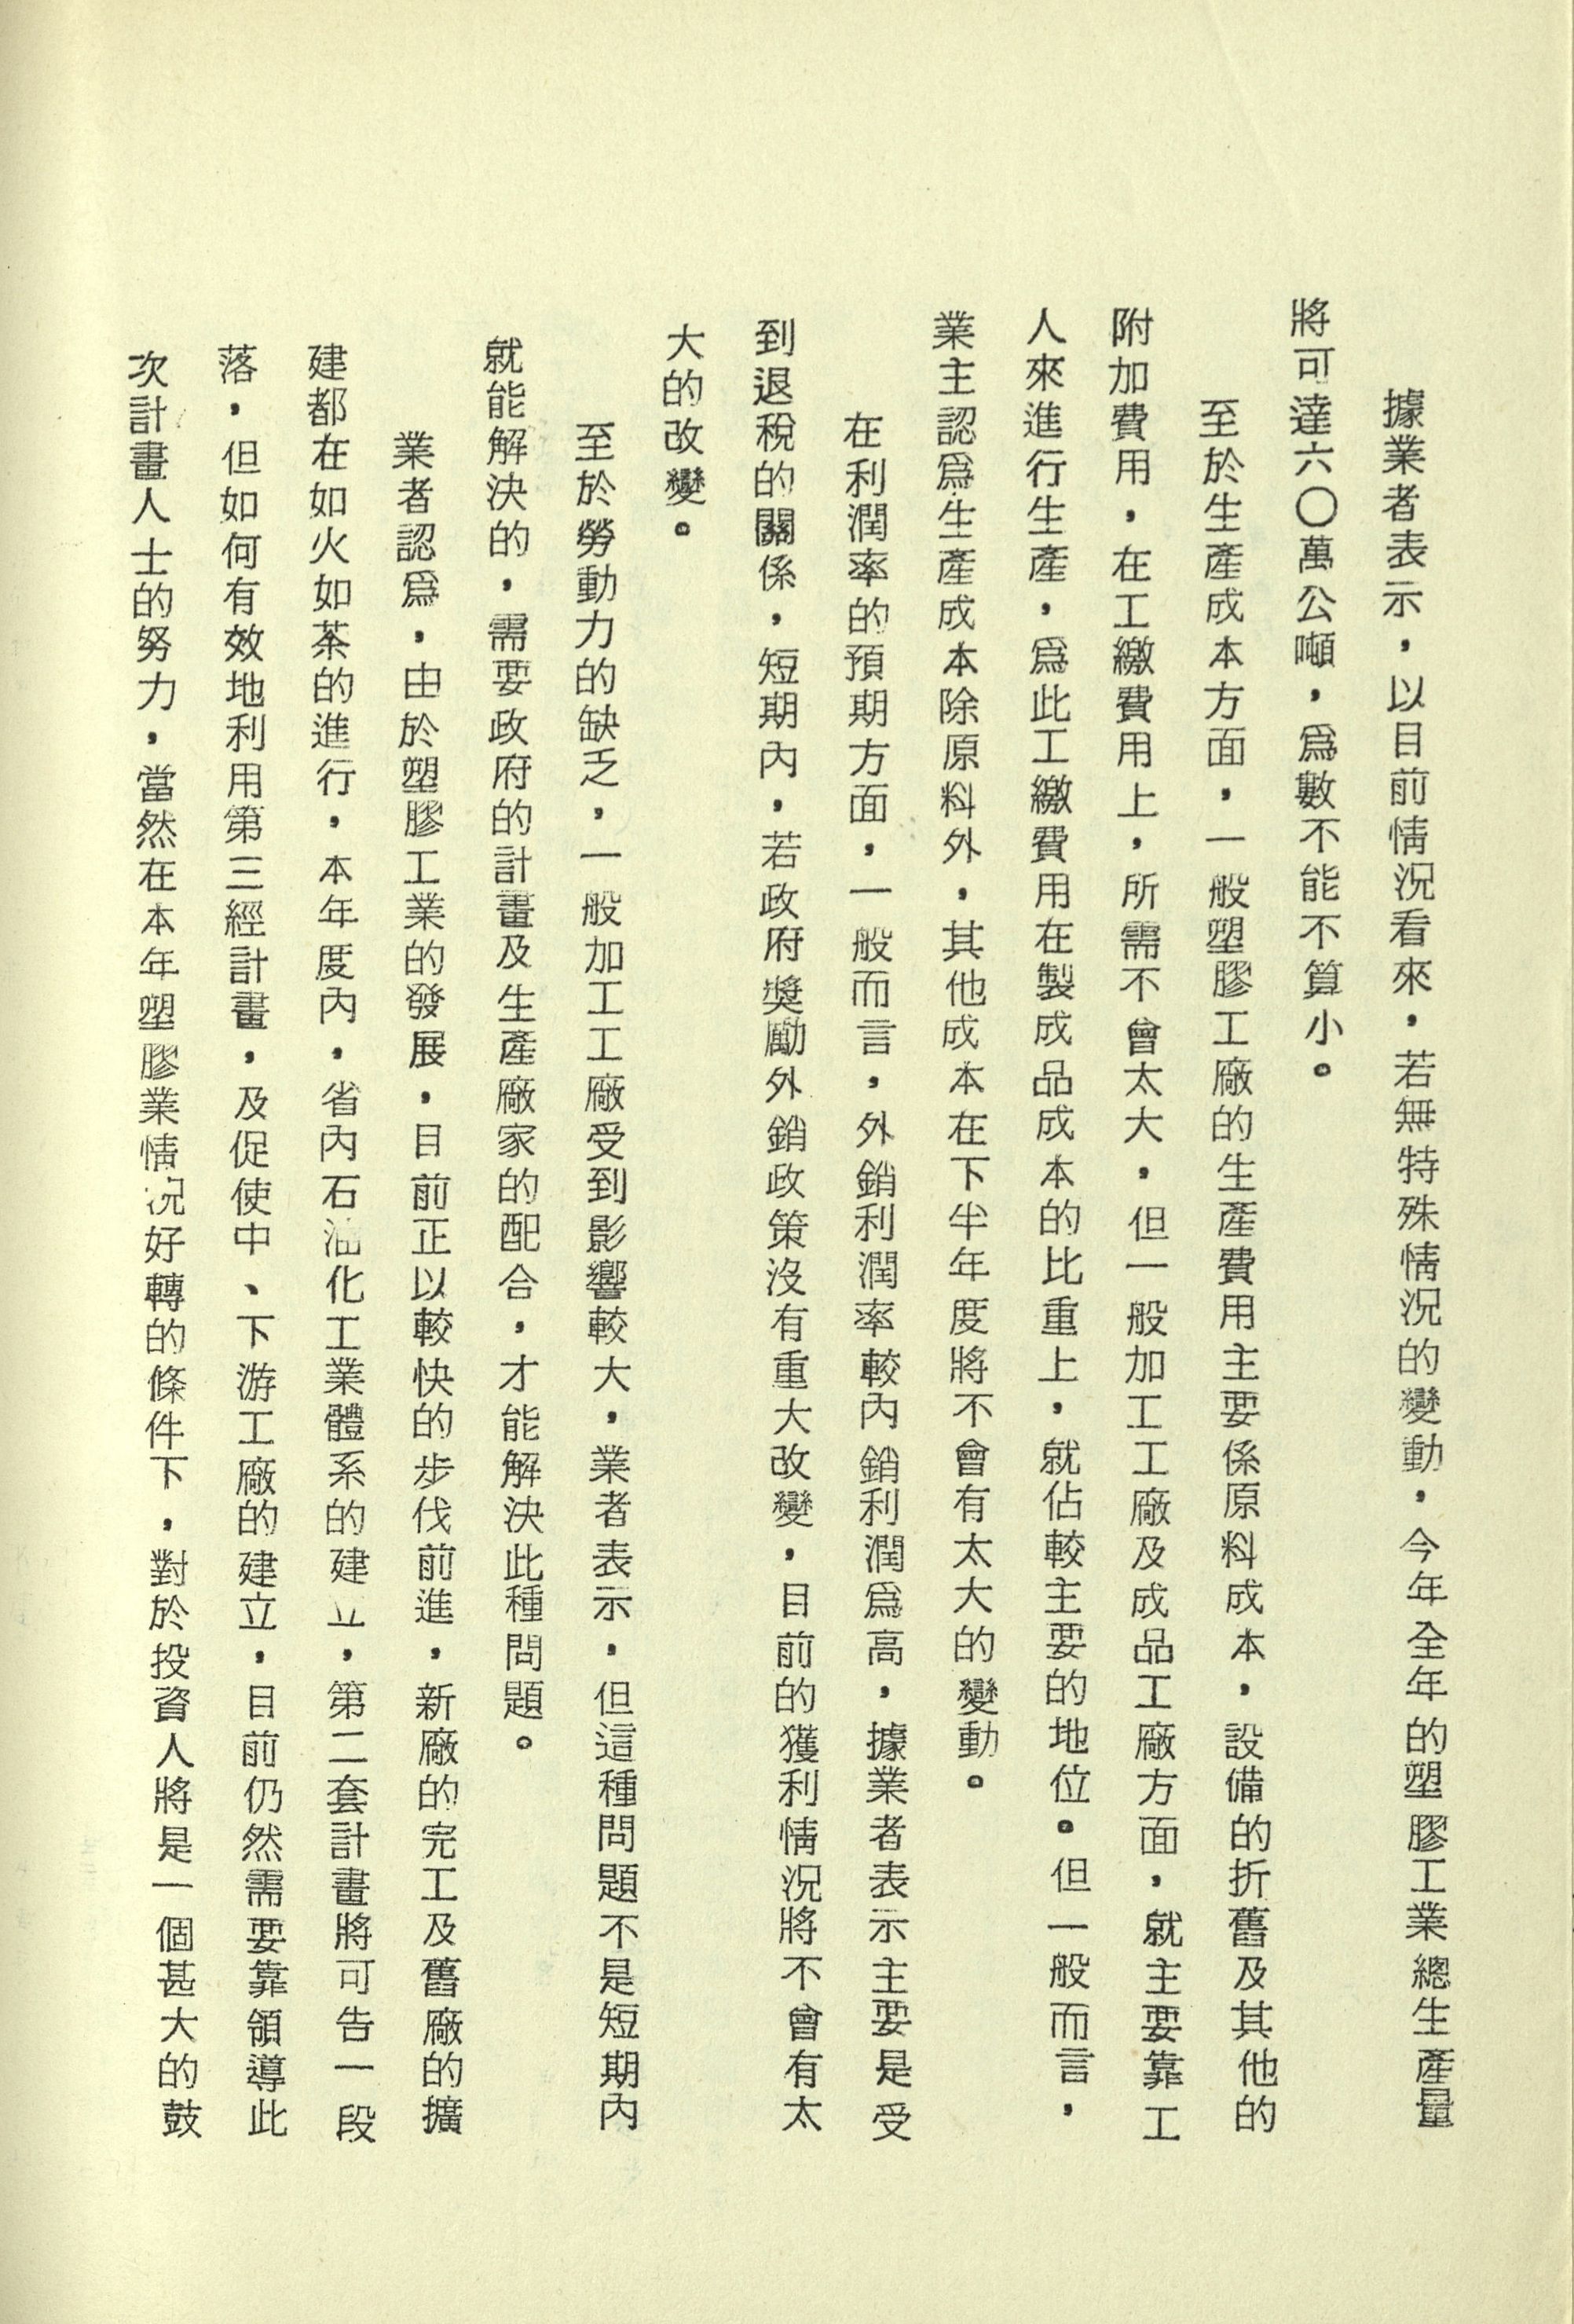 據業者表示，以目前情況看來，若無特殊情況的變動，今年全年的塑膠工業總生產量
將可達六〇萬公噸，爲數不能不算小。
至於生產成本方面，一般塑膠工廠的生產費用主要係原料成本，設備的折舊及其他的
附加費用，在工繳費用上，所需不會太大，但一般加工工廠及成品工廠方面，就主要靠工
人來進行生產，爲此工繳費用在製成品成本的比重上，就佔較主要的地位。但一般而言，
業主認爲生產成本除原料外，其他成本在下半年度將不會有太大的變動。
在利潤率的預期方面，一般而言，外銷利潤率較內銷利潤爲高，據業者表示主要是受
到退稅的關係，短期內，若政府獎勵外銷政策沒有重大改變，目前的獲利情況將不會有太
大的改變。
至於勞動力的缺乏，一般加工工廠受到影響較大，業者表示，但這種問題不是短期內
就能解決的，需要政府的計畫及生產廠家的配合，才能解決此種問題。
業者認爲，由於塑膠工業的發展，目前正以較快的步伐前進，新廠的完工及舊廠的擴
建都在如火如荼的進行，本年度內，省內石油化工業體系的建立，第二套計畫將可告一段
落，但如何有效地利用第三經計畫，及促使中、下游工廠的建立，目前仍然需要靠領導此
次計畫人士的努力，當然在本年塑膠業情況好轉的條件下，對於投資人將是一個甚大的鼓